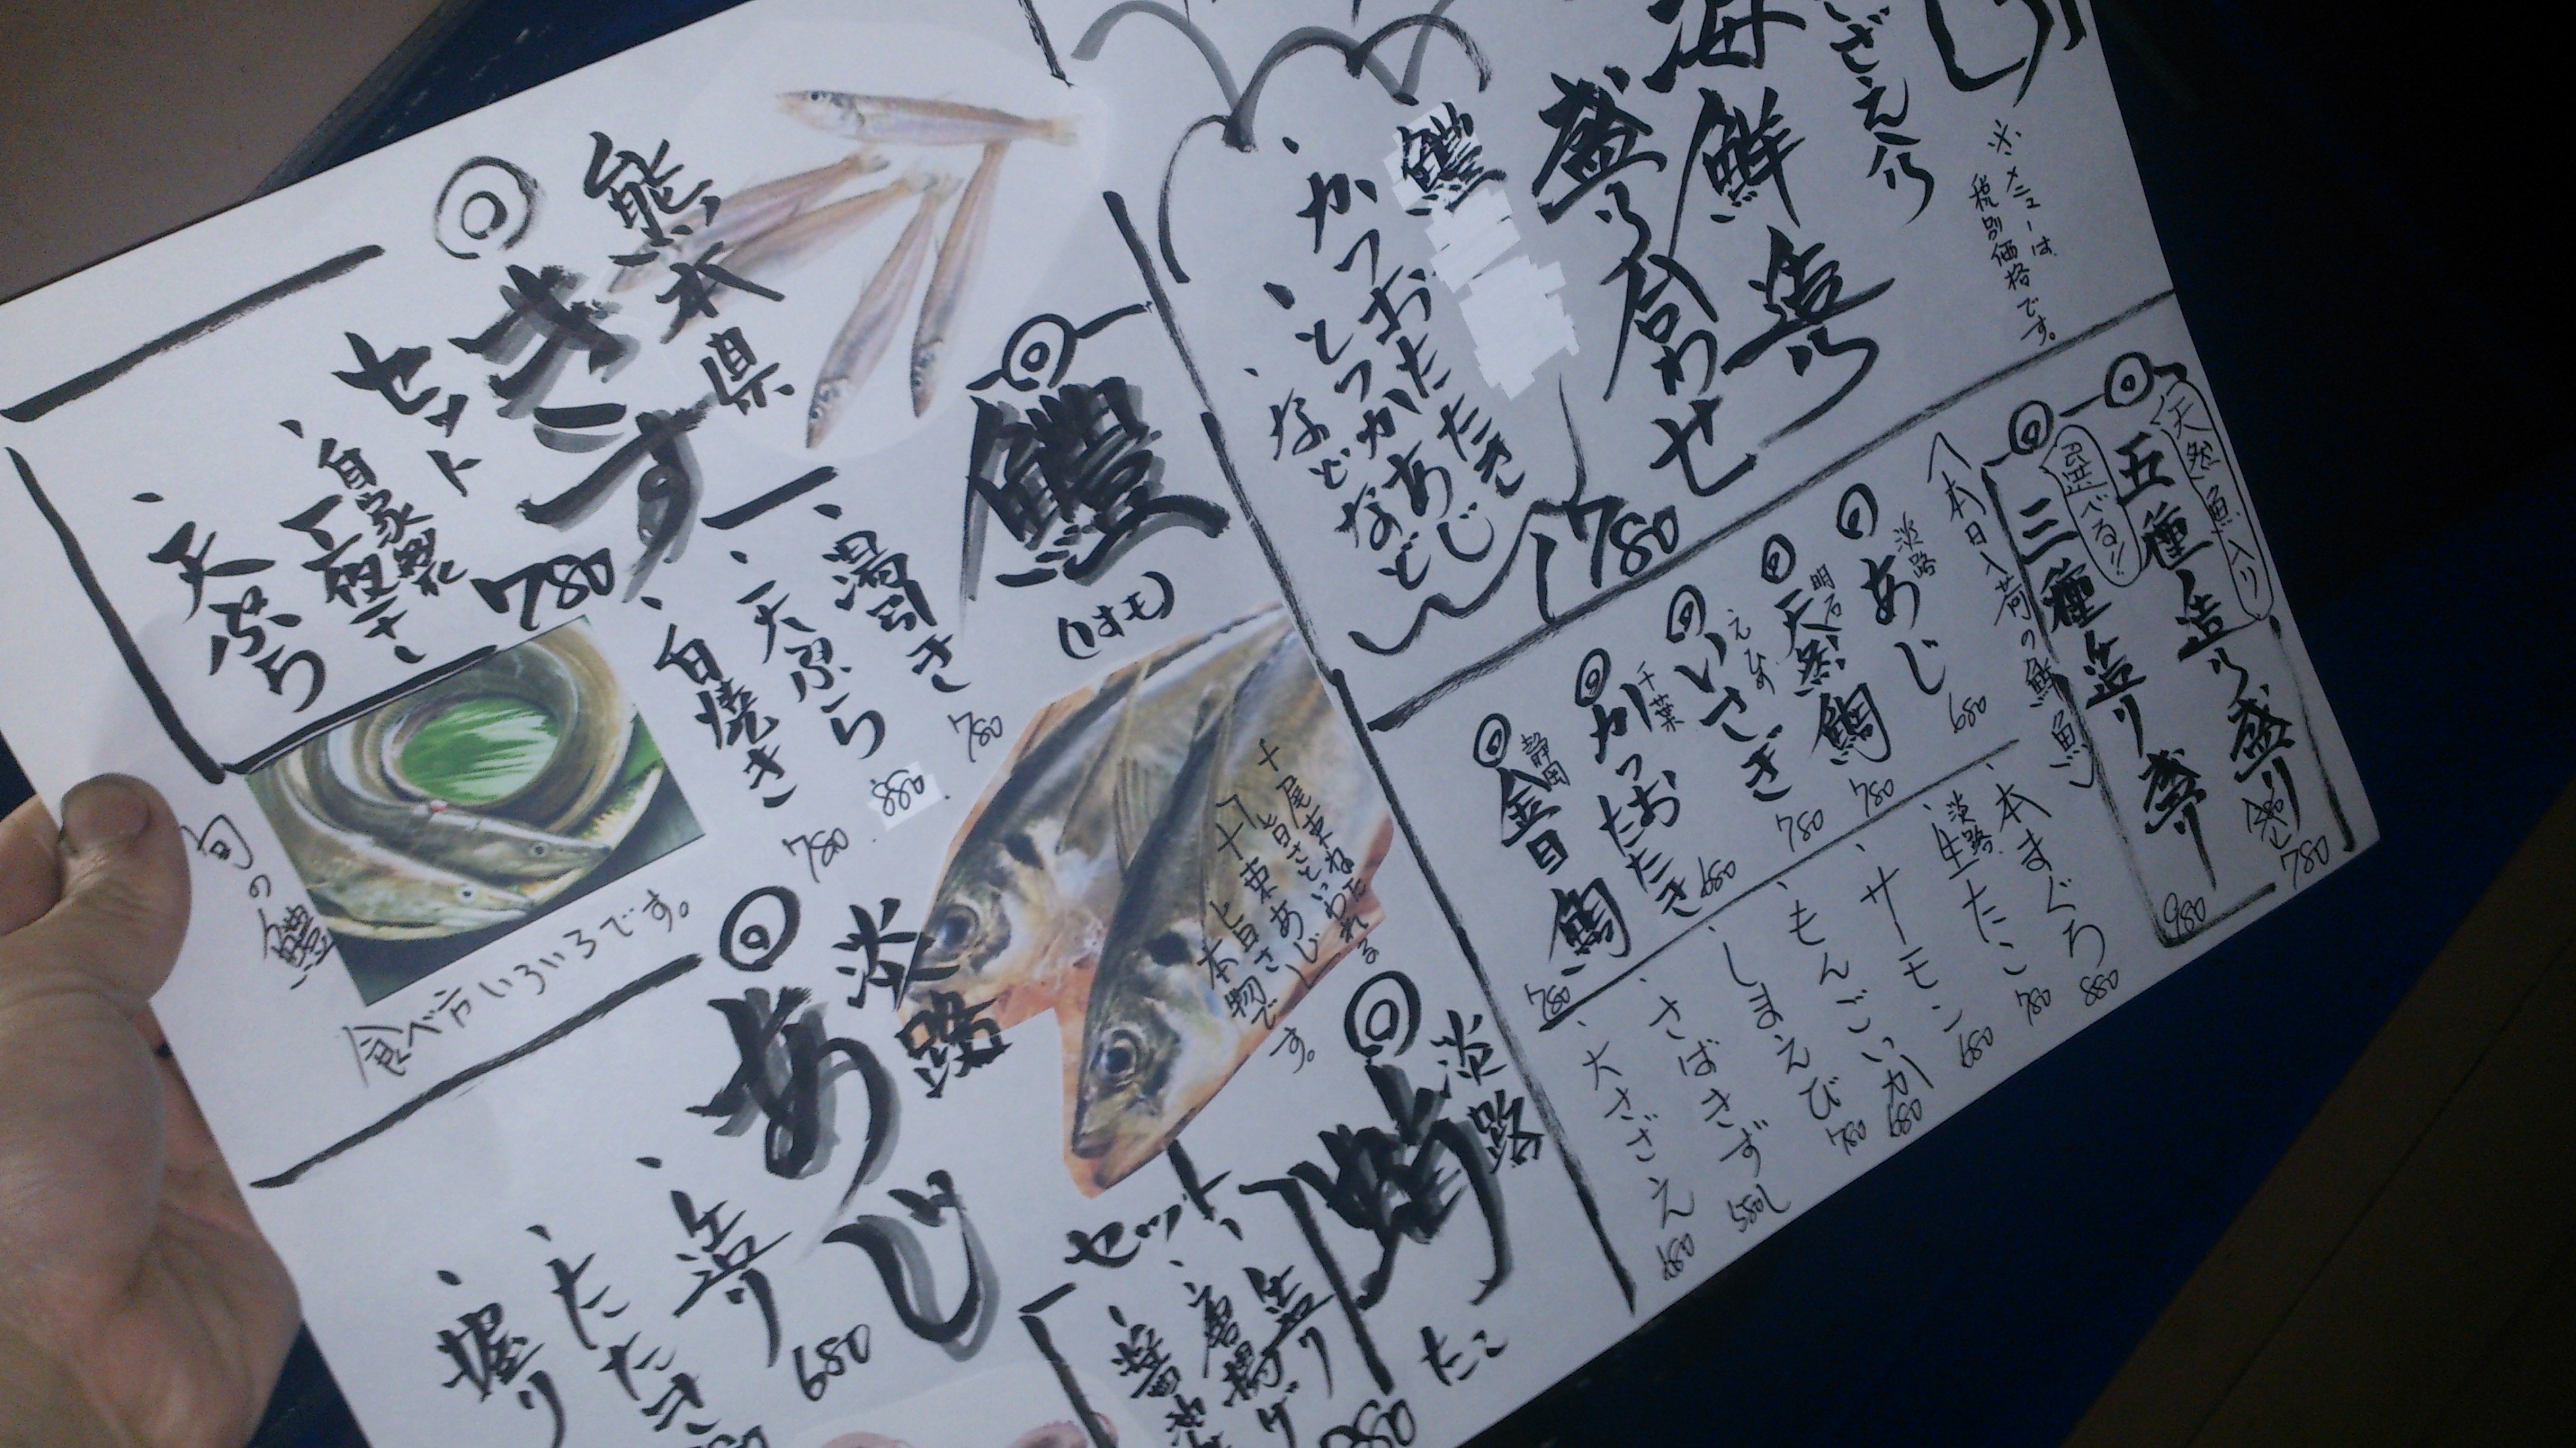 ※メニューは
税別価格です。
海鮮造り
盛り合わせ
780
鱧
かつおたたき
とっかあじ
などなど
天然魚入り
五種造り盛り
780
選べる!!
三種造り盛り
980
本日入荷の鮮魚
淡路
あじ
680
明石
天然鯛
780
えひめ
いさぎ
780
千葉
かつおたたき
680
静岡
金目鯛
780
本まぐろ
880
淡路
生たこ
780
サーモン
680
もんごいか
680
しまえび
780
さばきずし
580
大さざえ
680
熊本県
きす
780
セット
自家製
一夜干し
天ぷら
鱧
(はも)
湯引き
780
天ぷら
880
白焼き
780
旬の鱧
食べ方いろいろです。
淡路
あじ
造り
680
たたき
握り
十尾束ねた
旨さといわれる
「十束あじ」
旨さ本物です。
淡路
蛸
たこ
セット
造り
唐揚げ